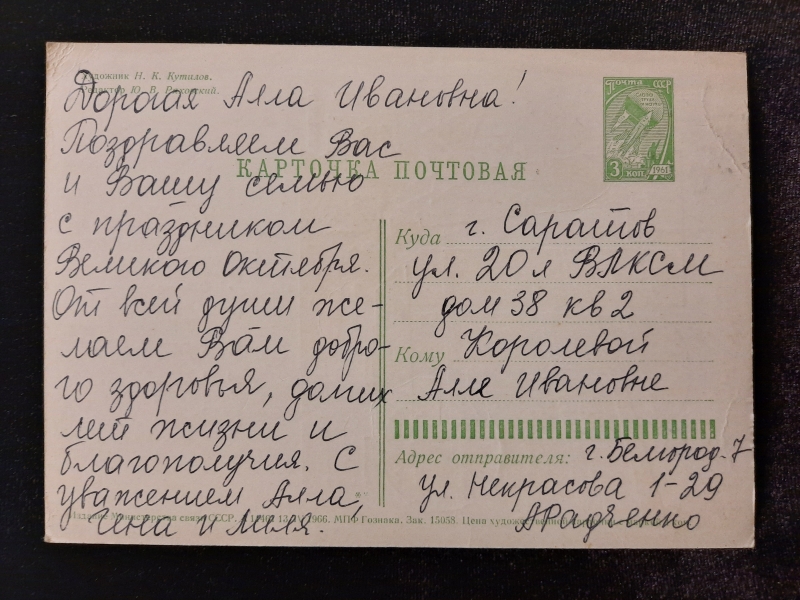 Художник Н. К. Кутилов.
Редактор Ю. В. Ряховский.
Дорогая Алла Ивановна!
Поздравляем Вас
и Вашу семью
с праздником
Великого Октября.
От всей души же-
лаем Вам добро-
го здоровья, долгих
лет жизни и
благополучия. С
уважением Алла,
и Миля.
Издание Министерства связи СССР. 1966. МПФ Гознака. Зак. 15058. Цена
ПОЧТА СССР
3 КОП
1961
КАРТОЧКА ПОЧТОВАЯ
Куда г. Саратов
ул. 20 л ВЛКСМ
дом 38 кв 2
Кому Королевой
Алле Ивановне
Адрес отправителя: г. Белгород-7
ул. Некрасова 1-29